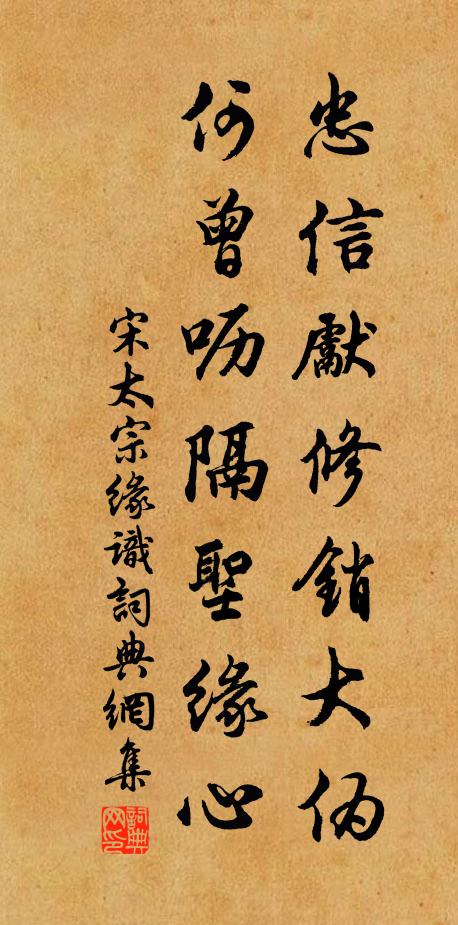 忠信獻修銷大偽
何曾呖隔聖緣心
宋太宗緣識詞典網集
詞典网印